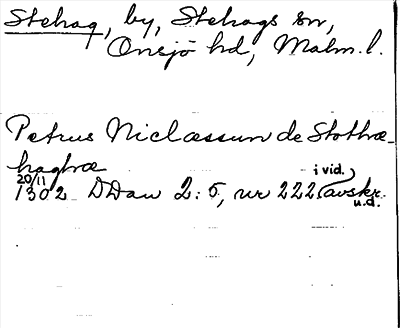 Stehag, by, Stehags sn,
Onsjö hd, Malm. l.
Petrus Niclæssun de Stothæ-
haghæ
20/11
1302 DDan 2:5, nr 222 (avskr. i vid.
u.d.